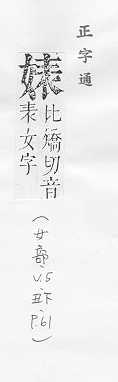 正字通
比矯切音
表女字
（女部 v.5 丑下 P.61）